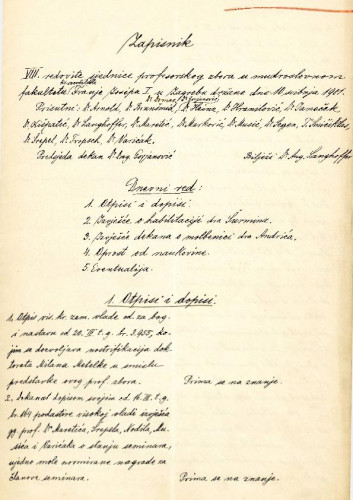 Zapisnik
VIII. redovite sjednice profesorskog zbora u mudroslovnom
fakultetu Franje Josipa I. u Zagrebu držane dne 10. 1901.
Prisutni: Dr. Arnold, Dr. Heinz, Dr. Hranilović, Dr. Janeček
Dr. Kišpatić, Dr. Langhoffer, Dr. Maretić, Dr. Marković, Dr. Musić, Dr.
Dr. Šrepel, Dr. Varićak.
Predsjeda dekan Dr. Drag. Gorjanović Bilježi Dr. Aug. Langhoffer
Dnevni red:
1. Otpisi i dopisi.
2. Izvješće o habilitaciji dra Šurmina.
3. Izvješće dekana o molbenici dra Andrića.
4. Oprost od naukovine.
5. Eventualija.
1. Otpisi i dopisi.
1. Otpis vis. kr. zem. vlade od za bog.
i nastavu od 20. t. g. br. 3955, ko-
jim se dozvoljava nostrifikacija dok-
torata Milana u smislu
predstavke ovog prof. zbora. Prima se na znanje.
2. Dekanat dopisom svojim od 16. t. g.
br. 164 podastire visokoj vladi izvješća
gg. prof. Dr. Maretića, Šrepela, Nodila, Mu-
sića i Varićaka o stanju seminara,
ujedno mole normirane nagrade za
članove seminara. Prima se na znanje.